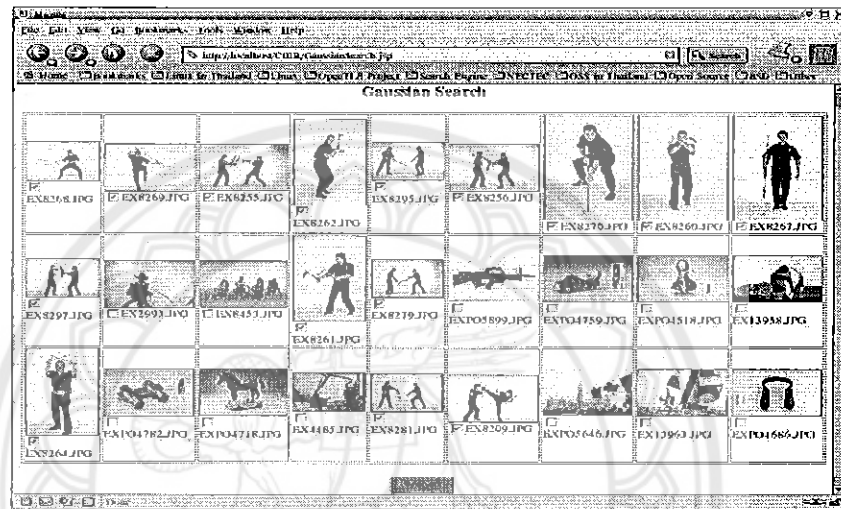 File Edit View Go Bookmarks Tools Window Help
http://localhost/CBIR/GaussianSearch.jsp Search
Home Bookmarks Linux in Thailand Linux OpenTLE Project Search Engine NECTEC OSS in Thailand Open Source BSD Other
Gaussian Search
EX8268.JPG EX8269.JPG EX8255.JPG EX8262.JPG EX8295.JPG EX8256.JPG EX8270.JPG EX8260.JPG EX8267.JPG
EX8297.JPG EX2993.JPG EX8453.JPG EX8261.JPG EX8279.JPG EXPO5899.JPG EXPO4759.JPG EXPO4518.JPG EX13958.JPG
EX8264.JPG EXPO4782.JPG EXPO4718.JPG EX4485.JPG EX8281.JPG EX8209.JPG EXPO5646.JPG EX13963.JPG EXPO4686.JPG